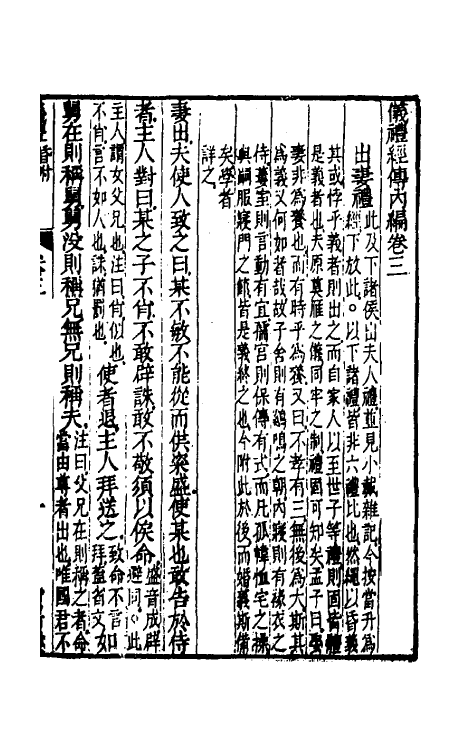 儀禮經傳內編卷三
出妻禮此及下諸侯出夫人禮並見小戴雜記今按當升為
經下放此○以下諸禮皆非六禮比也然繩以昏義
其或悖乎義者則出之而自家人以至世子等禮則固皆體
是義者也夫原奠雁之儀同牢之制禮固可知矣孟子曰娶
妻非為養也而有時乎為養又曰不孝有三無後為大斯其
為義又何如者哉故子舍則有雞鳴之朝內寢則有褖衣之
侍墓
則言動有宜
宮則保傅有式而凡孤幃恤宅之操
與嗣服寢門之節皆是義終之也今附此於後而婚義斯備
矣學者
詳之
妻出夫使人致之曰某不敏不能從而供粢盛使某也敢告於侍
者主人對曰某之子不肖不敢辟誅敢不敬須以俟命盛音成辟
避同○此
主人謂女父兄也注曰肖似也
不肖言不如人也誅猶罰也使者退主人拜送之致命不言如
拜蓋省文
舅在則稱舅舅沒則稱兄無兄則稱夫注曰父兄在則稱之者命
當由尊者出也唯國君不